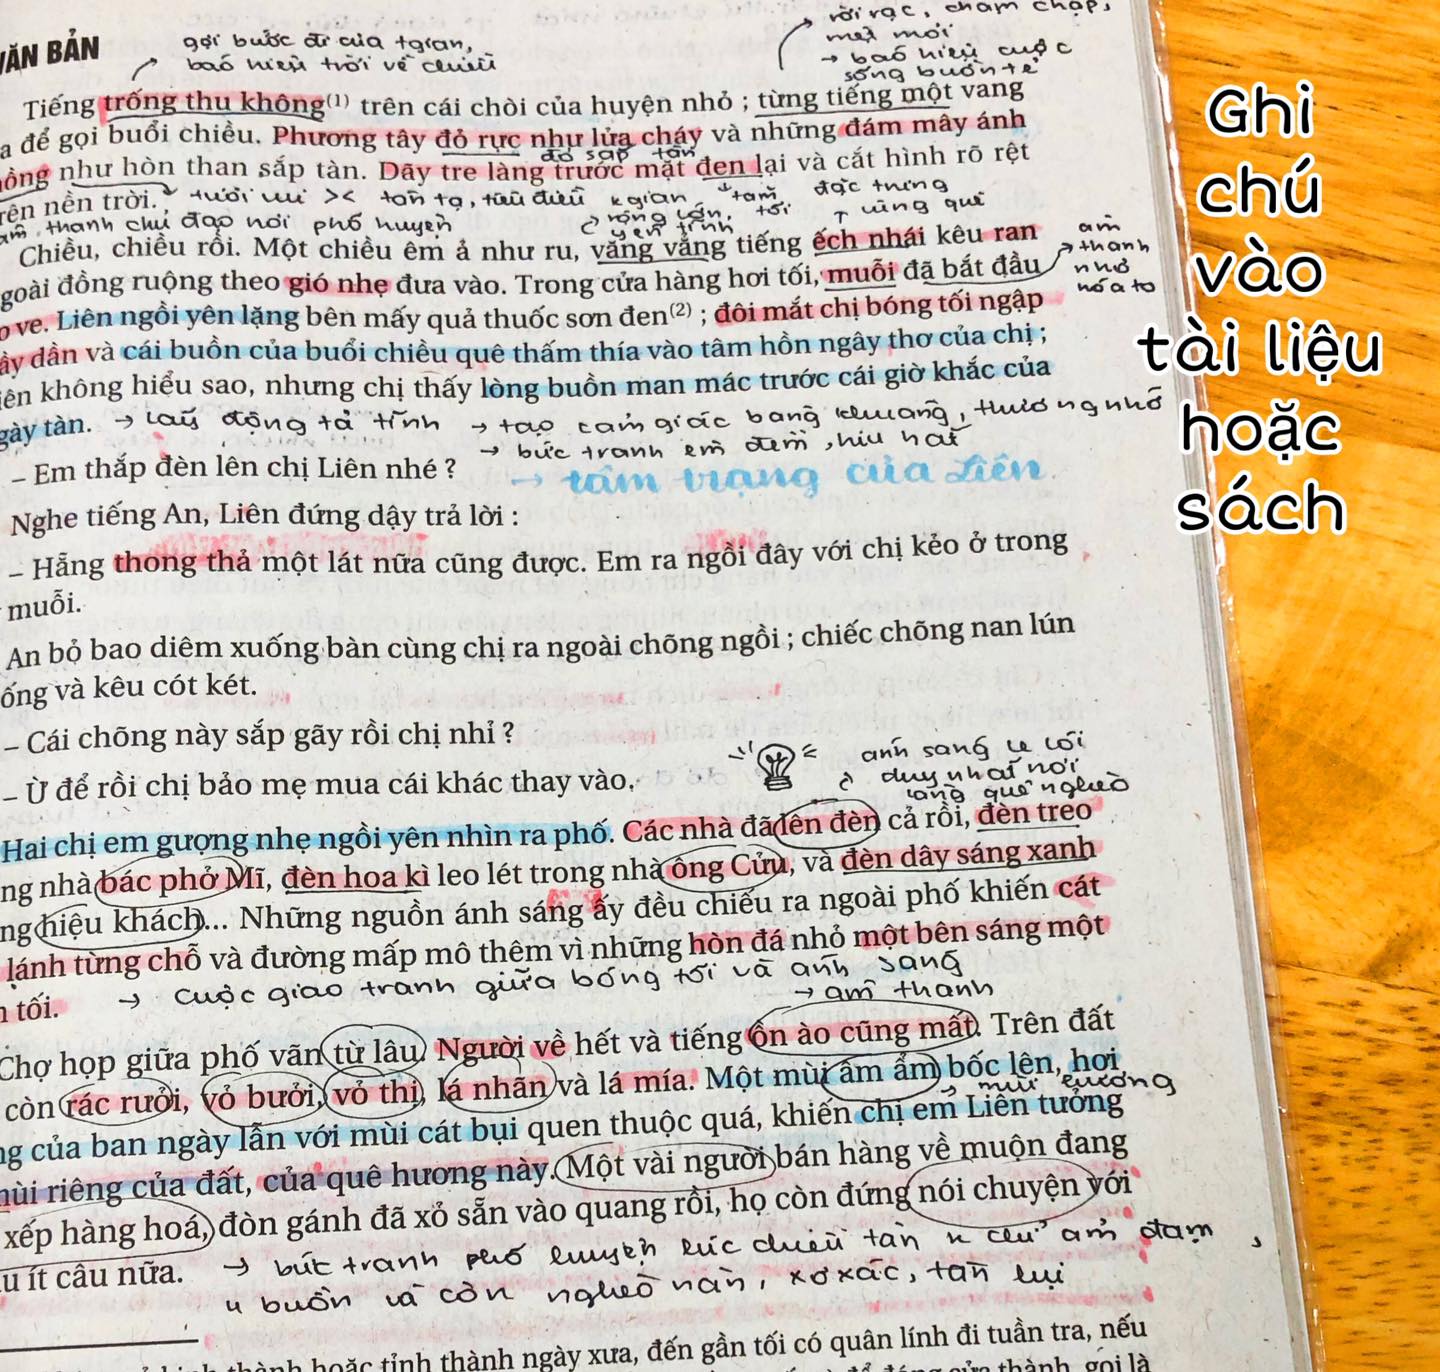 VĂN BẢN
gợi bước đi của tgian,
báo hiệu trời về chiều
rời rạc, chậm chạp,
mệt mỏi
→ báo hiệu cuộc
sống buồn tẻ
Tiếng trống thu không(1) trên cái chòi của huyện nhỏ ; từng tiếng một vang
a để gọi buổi chiều. Phương tây đỏ rực như lửa cháy và những đám mây ánh
hồng như hòn than sắp tàn. Dãy tre làng trước mặt đen lại và cắt hình rõ rệt
đỏ sắp tàn
rên nền trời.
tươi vui >< tàn tạ, tiêu điều
kgian
rộng lớn,
yên tĩnh
tăm
tối
đặc trưng
vùng quê
âm thanh chủ đạo nơi phố huyện
Chiều, chiều rồi. Một chiều êm ả như ru, văng vẳng tiếng ếch nhái kêu ran
goài đồng ruộng theo gió nhẹ đưa vào. Trong cửa hàng hơi tối, muỗi đã bắt đầu
âm
→ thanh
nhỏ
hóa to
o ve. Liên ngồi yên lặng bên mấy quả thuốc sơn đen(2) ; đôi mắt chị bóng tối ngập
ầy dần và cái buồn của buổi chiều quê thấm thía vào tâm hồn ngây thơ của chị ;
iên không hiểu sao, nhưng chị thấy lòng buồn man mác trước cái giờ khắc của
gày tàn.
→ lấy động tả tĩnh → tạo cảm giác bâng khuâng, thương nhớ
→ bức tranh êm đềm, hiu hắt
– Em thắp đèn lên chị Liên nhé ?
→ tâm trạng của Liên.
Nghe tiếng An, Liên đứng dậy trả lời :
– Hẵng thong thả một lát nữa cũng được. Em ra ngồi đây với chị kẻo ở trong
muỗi.
An bỏ bao diêm xuống bàn cùng chị ra ngoài chõng ngồi ; chiếc chõng nan lún
ống và kêu cót két.
– Cái chõng này sắp gãy rồi chị nhỉ ?
– Ừ để rồi chị bảo mẹ mua cái khác thay vào.
ánh sáng le lói
duy nhất nơi
làng quê nghèo
Hai chị em gượng nhẹ ngồi yên nhìn ra phố. Các nhà đã lên đèn cả rồi, đèn treo
ng nhà bác phở Mĩ, đèn hoa kì leo lét trong nhà ông Cửu, và đèn dây sáng xanh
ng hiệu khách... Những nguồn ánh sáng ấy đều chiếu ra ngoài phố khiến cát
lánh từng chỗ và đường mấp mô thêm vì những hòn đá nhỏ một bên sáng một
n tối.
→ cuộc giao tranh giữa bóng tối và ánh sáng
→ âm thanh
Chợ họp giữa phố vãn từ lâu. Người về hết và tiếng ồn ào cũng mất. Trên đất
còn rác rưởi, vỏ bưởi, vỏ thị, lá nhãn và lá mía. Một mùi âm ẩm bốc lên, hơi
→ mùi hương
ng của ban ngày lẫn với mùi cát bụi quen thuộc quá, khiến chị em Liên tưởng
mùi riêng của đất, của quê hương này. Một vài người bán hàng về muộn đang
xếp hàng hoá, đòn gánh đã xỏ sẵn vào quang rồi, họ còn đứng nói chuyện với
u ít câu nữa.
→ bức tranh phố huyện lúc chiều tàn k chỉ ảm đạm,
u buồn và còn nghèo nàn, xơ xác, tàn lụi
thành hoặc tỉnh thành ngày xưa, đến gần tối có quân lính đi tuần tra, nếu
thành, gọi là
Ghi
chú
vào
tài liệu
hoặc
sách